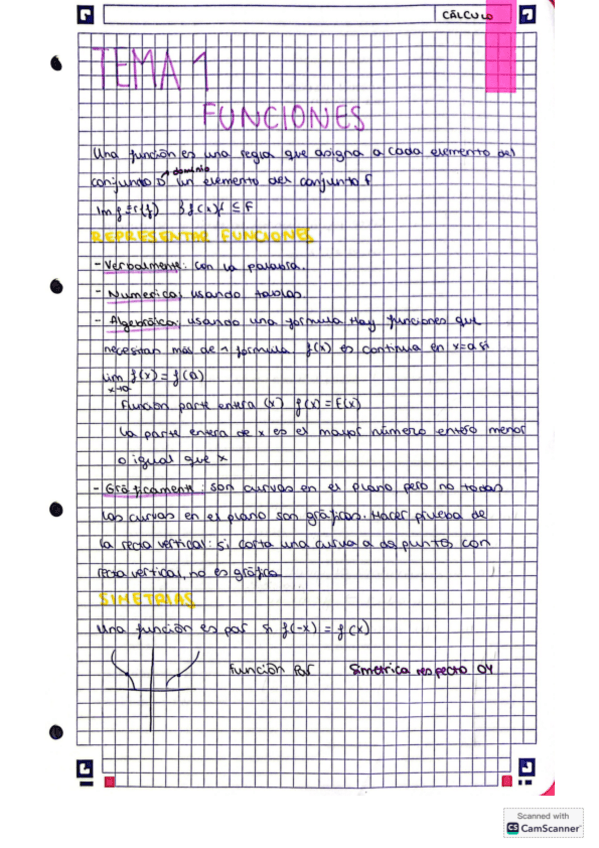 CÁLCULO
TEMA 1
FUNCIONES
Una función es una regla que asigna a cada elemento del
dominio
conjunto D un elemento del conjunto F
Im f = r(f) {f(x)} ⊆ F
REPRESENTAR FUNCIONES
- Verbalmente: con la palabra.
- Numerica: usando tablas
- Algebráica: usando una formula. Hay funciones que
necesitan más de 1 formula. f(x) es continua en x=a si
lim f(x) = f(a)
x→a
Función parte entera (x) f(x) = E(x)
La parte entera de x es el mayor número entero menor
o igual que x
- Gráficamente: son curvas en el plano pero no todas
las curvas en el plano son gráficas. Hacer prueba de
la recta vertical: si corta una curva a dos puntos con
recta vertical, no es gráfica
SIMETRIAS
Una función es par si f(-x) = f(x)
Función Par Simetrica respecto OY
Scanned with
CS CamScanner